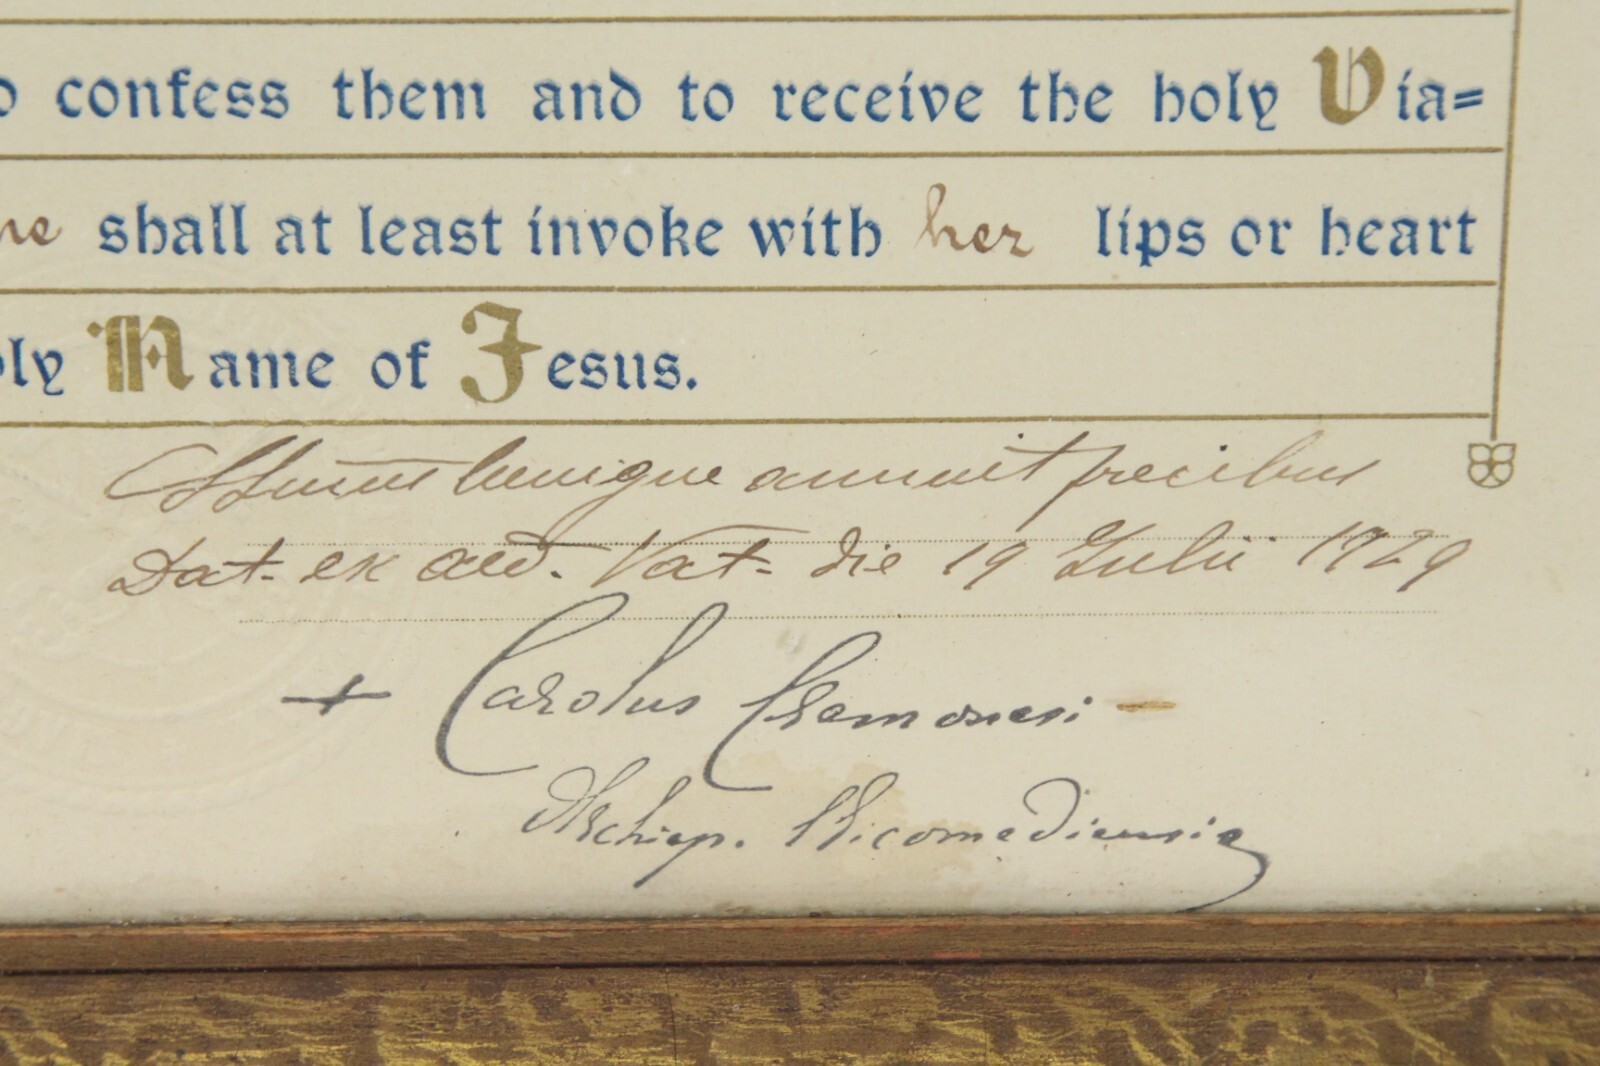 confess them and to receive the holy Via=
shall at least invoke with her lips or heart
Name of Jesus.
benigne annuit precibus
Dat. ex aed. Vat. die 19 Julii 1929
+ Carolus Cremonesi
Archiep. Nicomediensis